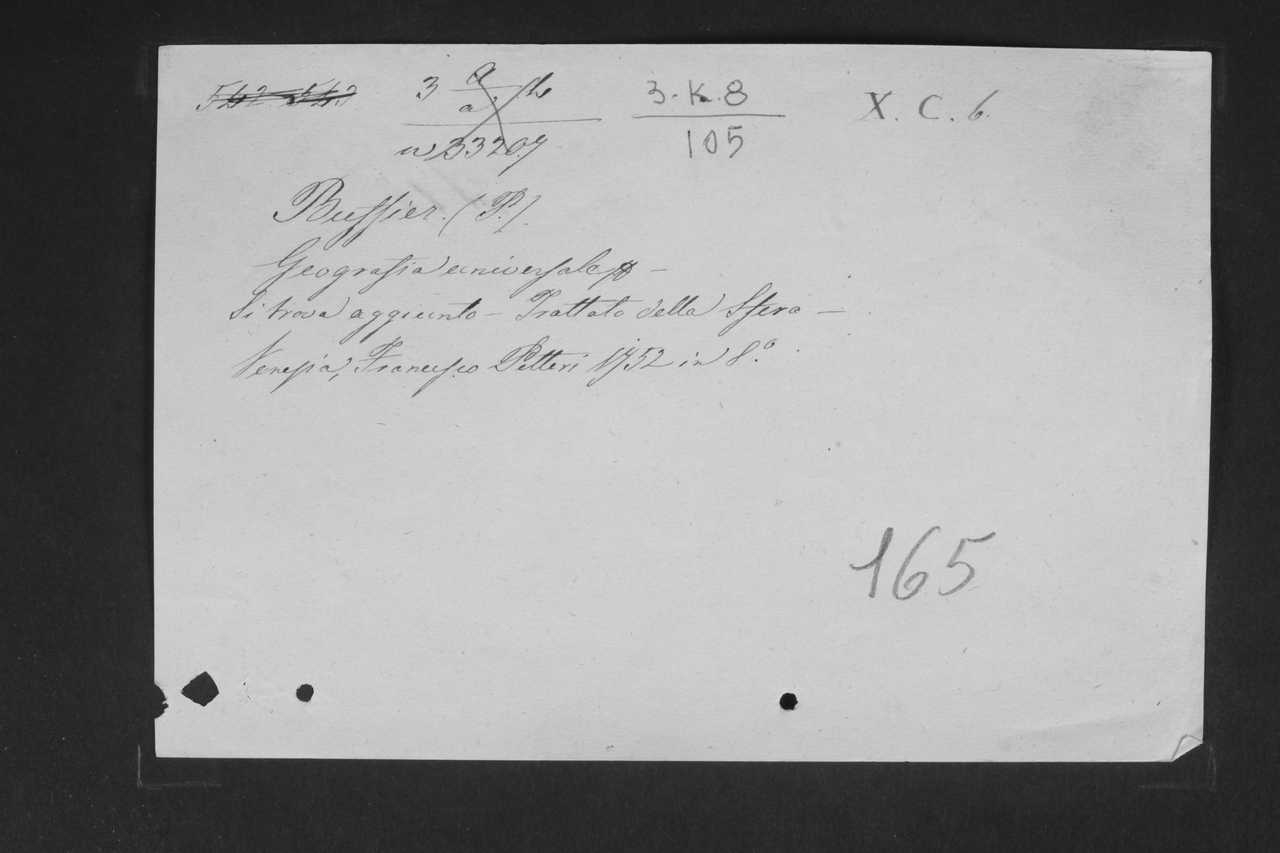 3 a/a
3.K.8
105
X. C. 6.
n 33207
Buffier. (P.)
Geografia universale —
Si trova aggiunto — Trattato della Sfera —
Venezia, Francesco Pitteri 1752 in 8.º
165